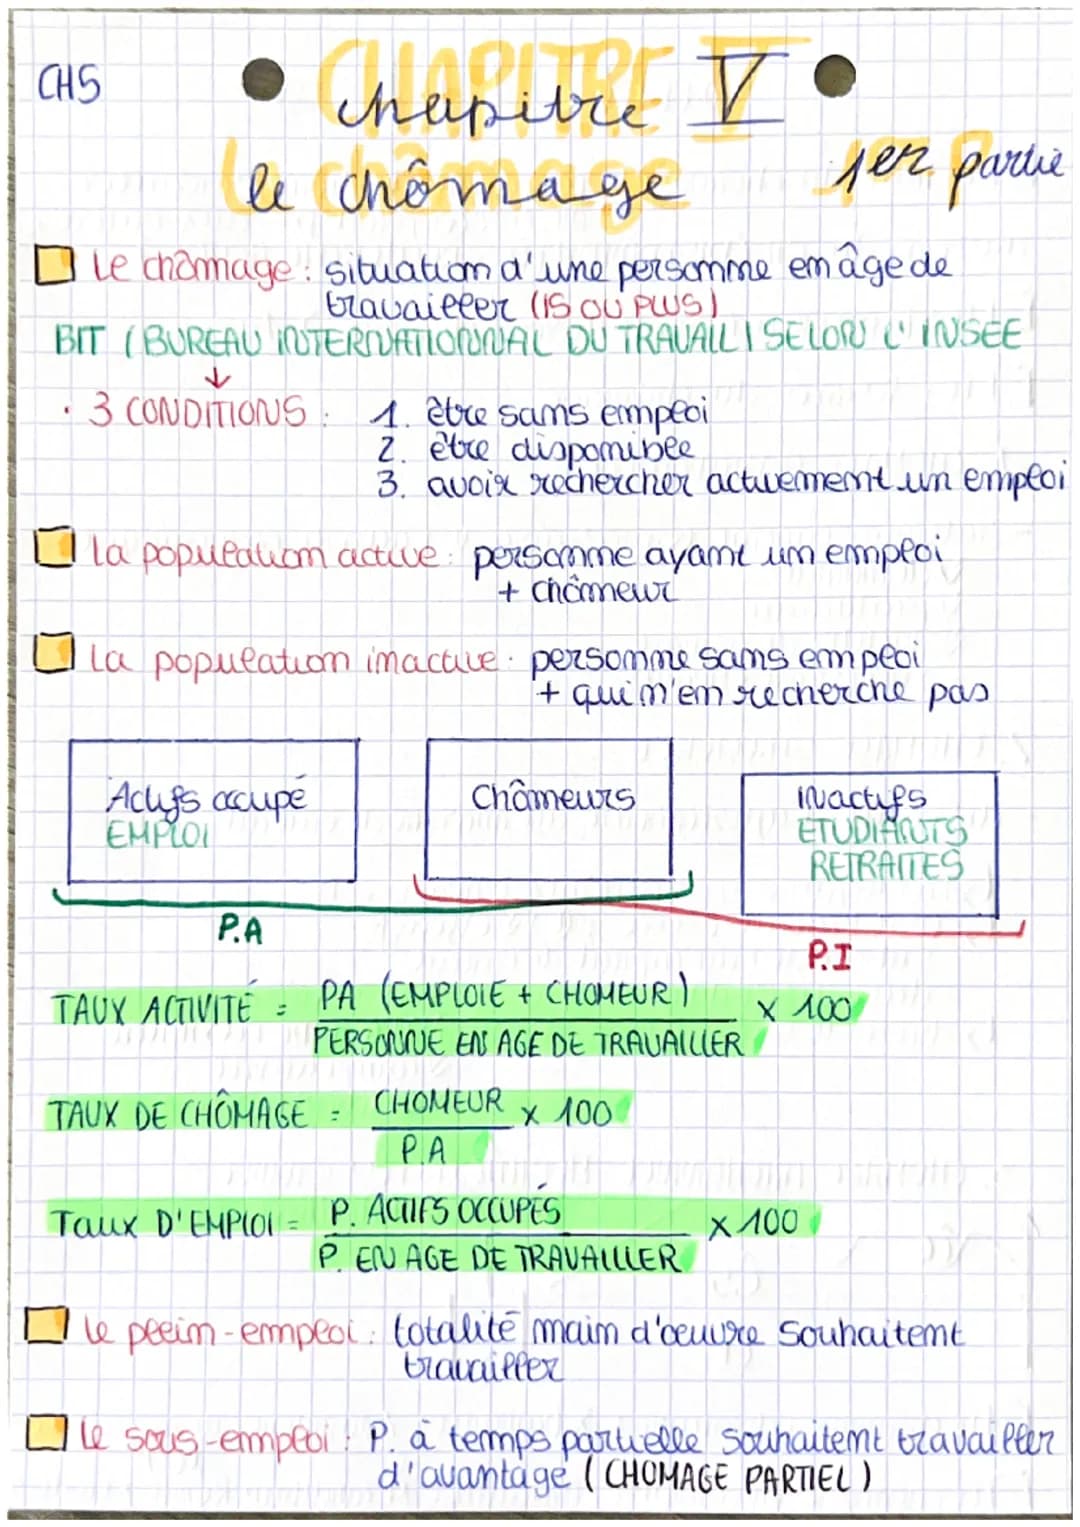 CH5
CHAPITRE V
chapitre V
le chômage
1er partie
Le chômage : situation d'une personne en âge de
travailler (15 OU PLUS)
BIT (BUREAU INTERNATIONNAL DU TRAVAIL) SELON L'INSEE
↓
• 3 CONDITIONS : 1. être sans emploi
2. être disponible
3. avoir rechercher activement un emploi
La population active : personne ayant un emploi
+ chômeur
La population inactive : personne sans emploi
+ qui n'en recherche pas
Actifs occupé
EMPLOI
Chômeurs
INactifs
ETUDIANTS
RETRAITES
P.A
P.I
TAUX ACTIVITÉ = PA (EMPLOIE + CHOMEUR) x 100
PERSONNE EN AGE DE TRAVAILLER
TAUX DE CHÔMAGE = CHOMEUR x 100
P.A
Taux D'EMPLOI = P. ACTIFS OCCUPÉS x 100
P. EN AGE DE TRAVAILLER
Le plein-emploi : totalité main d'œuvre souhaitent
travailler
Le sous-emploi : P. à temps partielle souhaitent travailler
d'avantage (CHOMAGE PARTIEL)